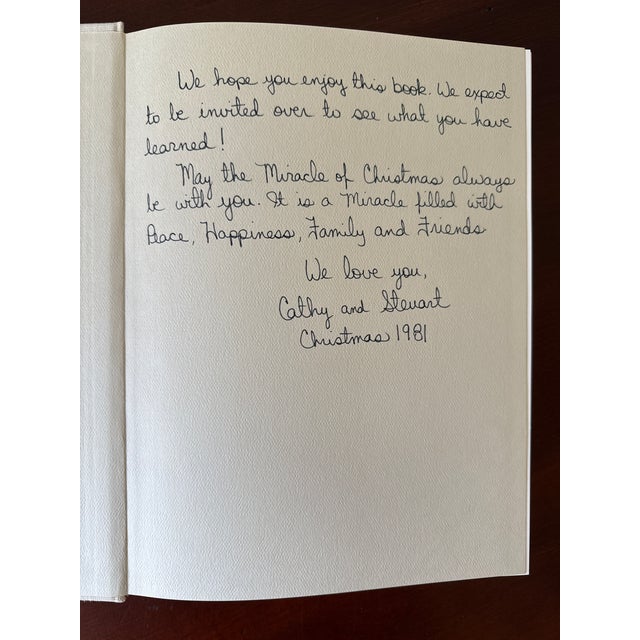 We hope you enjoy this book. We expect
to be invited over to see what you have
learned!
May the Miracle of Christmas always
be with you. It is a Miracle filled with
Peace, Happiness, Family and Friends
We love you,
Cathy and Stewart
Christmas 1981